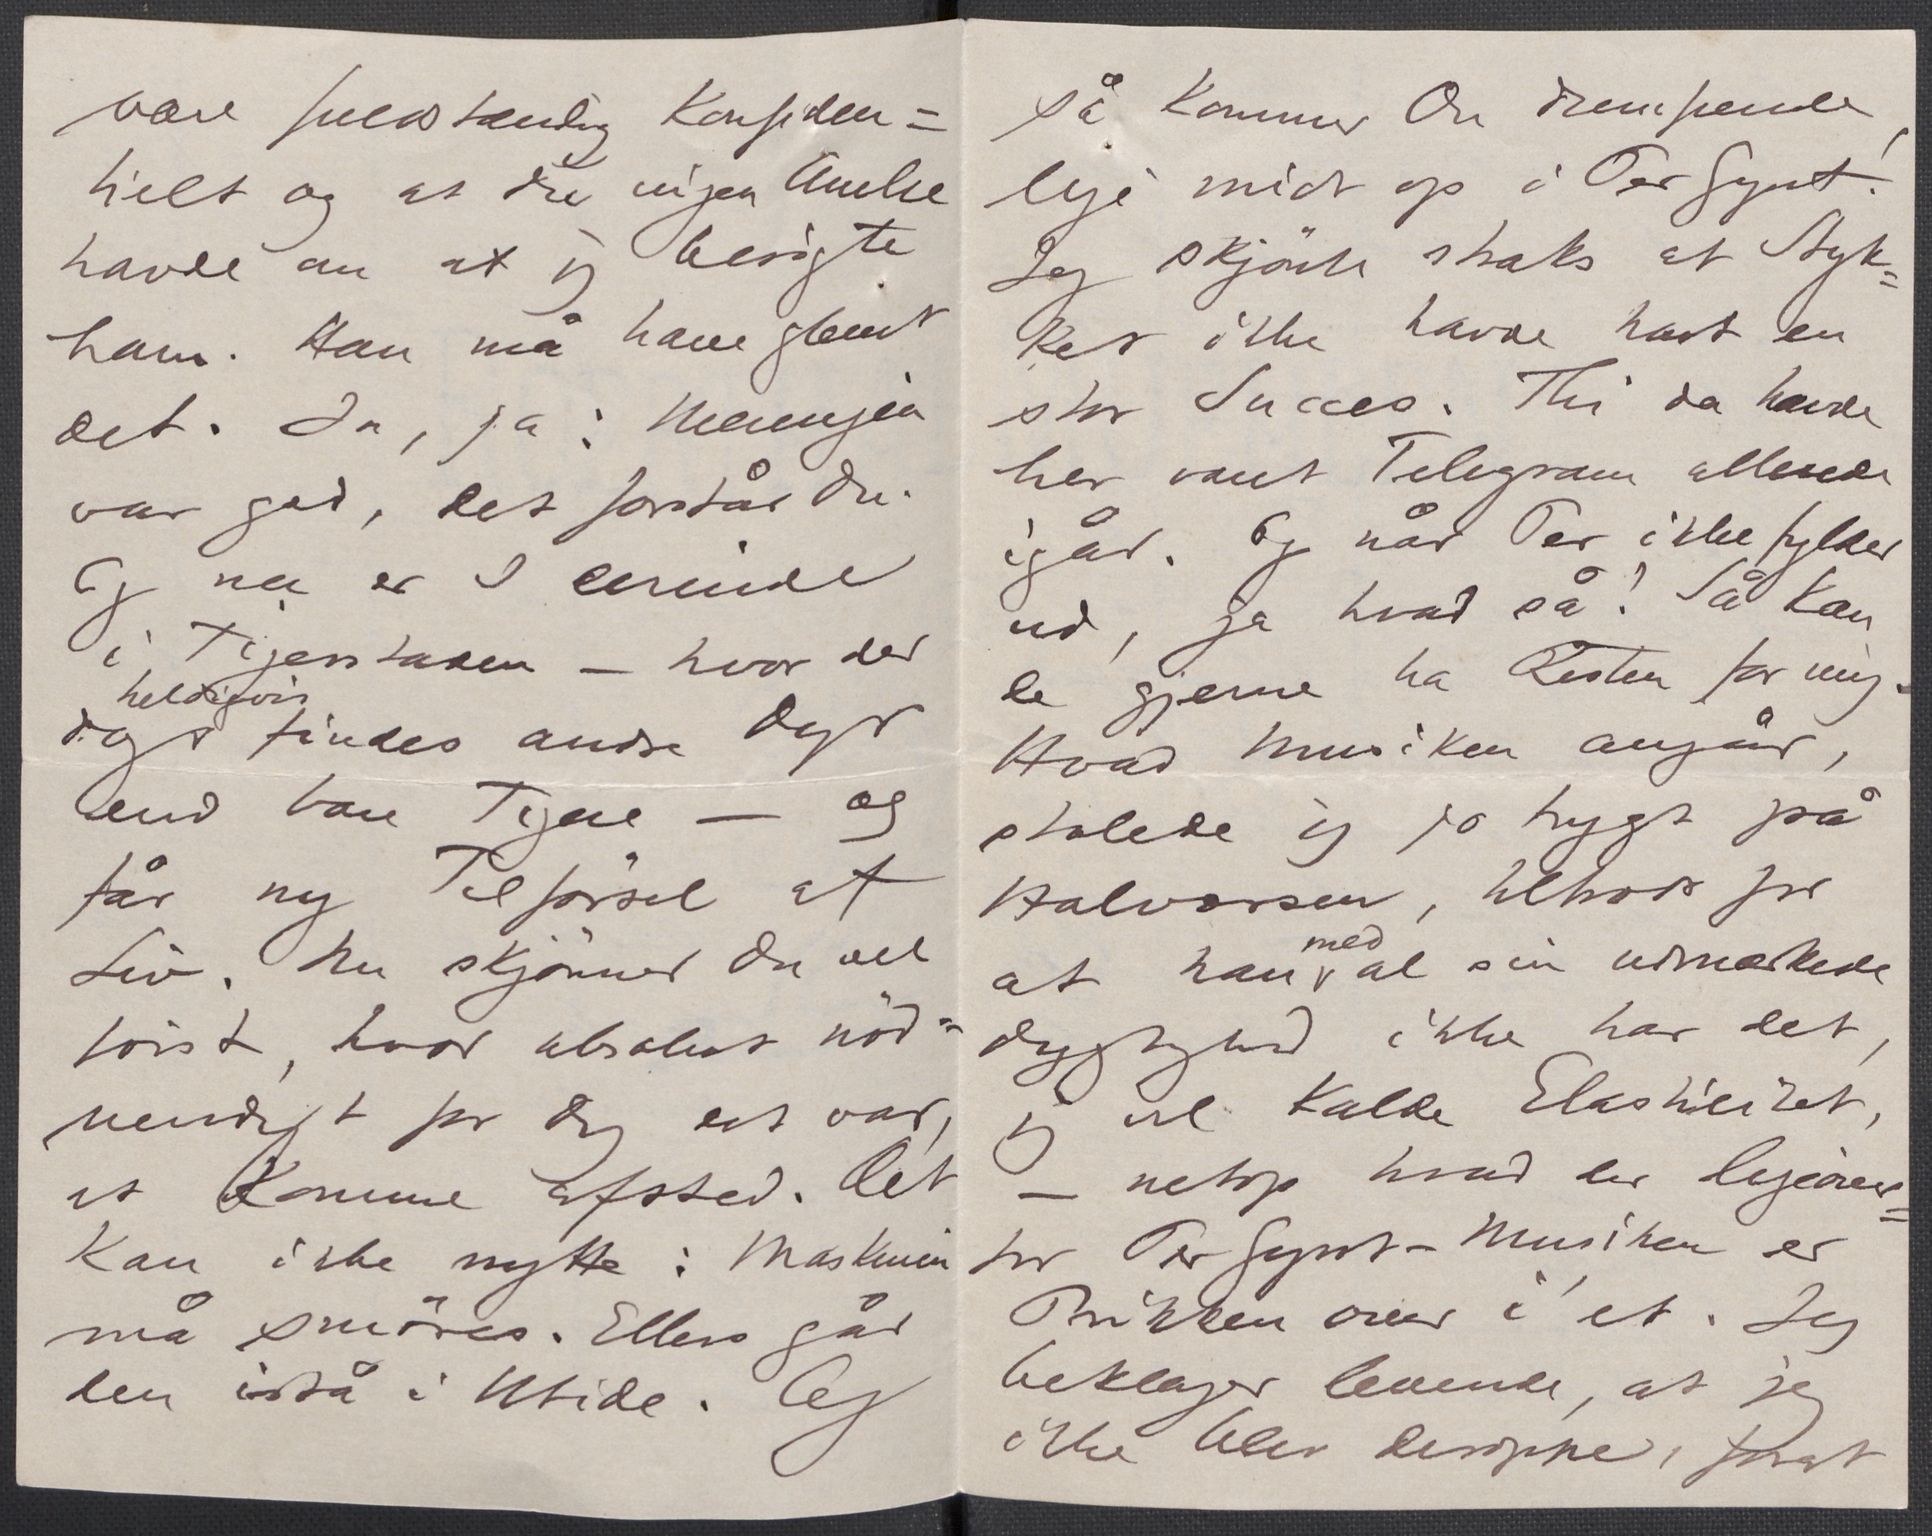 være fuldstændig Konfiden=
tielt og at du ingen Anelse
havde om at jeg besøgte
ham. Han må have glemt
det. Ja, ja: Meningen
var god, det forstår Du.
Og nu er I arrivde
i Tigerstaden – hvor der
heldigvis
dog findes andre Dyr
end bare Tigere – og
får ny Tilførsel af
Liv. Nu skjönner Du vel
først, hvor absolut nöd=
vendigt for dig det var,
at komme afsted. Det
kan ikke nytte: Maskinen
må smöres. Ellers går
den istå i Utide. Og
så kommer Du dumpende
lige midt op i Peer Gynt!
Jeg skjönte straks at Styk=
ket ikke havde havt en
stor Succes. Thi da havde
her vært Telegram allerede
igår. Og når Peer ikke fylder
ud, ja hvad så! Så kan
de gjerne ha Resten for mig.
Hvad Musiken angår,
stolede jeg jo trygt på
Halvorsen, tiltrods for
at han med al sin udmærkede
Dygtighed ikke har det,
jeg vil kalde Elasticitet,
– netop hvad der ligeover=
for Peer Gynt-Musiken er
Prikken over i'et. Jeg
beklager levende, at jeg
ikke blev deroppe, forat